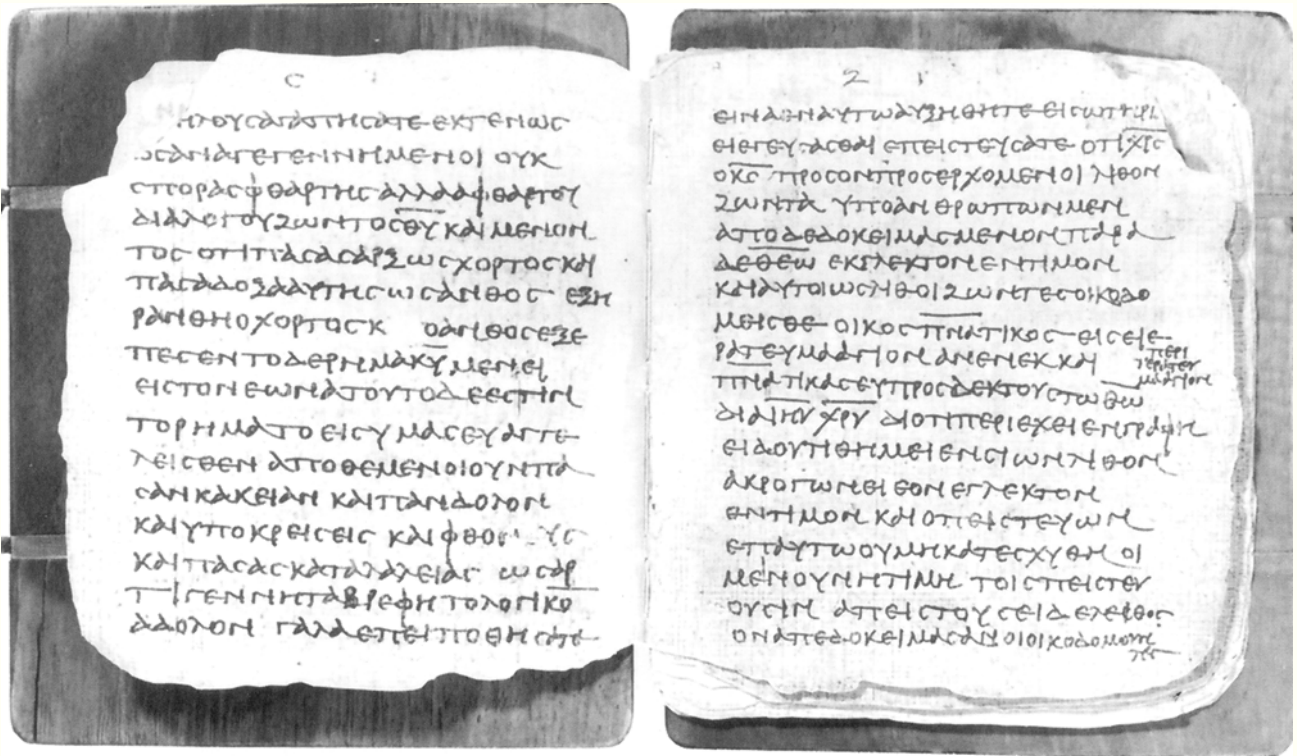 Ϲ
ΗΛΟΥϹΑΓΑΠΗϹΑΤΕ ΕΚΤΕΝΩϹ
ΩϹΑΝΑΓΕΓΕΝΝΗΜΕΝΟΙ ΟΥΚ
ϹΠΟΡΑϹΦΘΑΡΤΗϹ ΑΛΛΑΑΦΘΑΡΤΟΥ
ΔΙΑΛΟΓΟΥΖΩΝΤΟϹΘΥ ΚΑΙ ΜΕΝΟΝ
ΤΟϹ ΟΤΙΠΑϹΑϹΑΡΞΩϹΧΟΡΤΟϹΚΑΙ
ΠΑϹΑΔΟΞΑΑΥΤΗϹ ΩϹΑΝΘΟϹ ΕΞΗ
ΡΑΝΘΗΟΧΟΡΤΟϹΚ ΟΑΝΘΟϹΕΞΕ
ΠΕϹΕΝΤΟΔΕΡΗΜΑΚΥ ΜΕΝΕΙ
ΕΙϹΤΟΝΕΩΝΑΤΟΥΤΟΔΕΕϹΤΙΝ
ΤΟΡΗΜΑΤΟΕΙϹΥΜΑϹΕΥΑΓΓΕ
ΛΕΙϹΘΕΝ ΑΠΟΘΕΜΕΝΟΙΟΥΝΠΑ
ϹΑΝΚΑΚΕΙΑΝ ΚΑΙΠΑΝΔΟΛΟΝ
ΚΑΙΥΠΟΚΡΕΙϹΕΙϹ ΚΑΙΦΘΟΝ ΥϹ
ΚΑΙΠΑϹΑϹΚΑΤΑΛΑΛΕΙΑϹ ΩϹΑΡ
ΤΙΓΕΝΝΗΤΑΒΡΕΦΗΤΟΛΟΓΙΚΟ
ΑΔΟΛΟΝ ΓΑΛΑΕΠΕΙΠΟΘΗϹΑΤΕ
Ζ
ΕΙΝΑΕΝΑΥΤΩΑΥΞΗΘΗΤΕ ΕΙϹϹΩΤΗΡΙ
ΕΙΕΓΕΥϹΑϹΘΑΙ ΕΠΕΙϹΤΕΥϹΑΤΕ ΟΤΙΧΡϹ
ΟΚϹ ΠΡΟϹΟΝΠΡΟϹΕΡΧΟΜΕΝΟΙ ΛΙΘΟΝ
ΖΩΝΤΑ ΥΠΟΑΝΘΡΩΠΩΝΜΕΝ
ΑΠΟΔΕΔΟΚΕΙΜΑϹΜΕΝΟΝΠΑΡΑ
ΔΕΘΕΩ ΕΚΓΛΕΚΤΟΝΕΝΤΙΜΟΝ
ΚΑΙΑΥΤΟΙΩϹΛΙΘΟΙΖΩΝΤΕϹΟΙΚΟΔΟ
ΜΕΙϹΘΕ ΟΙΚΟϹΠΝΑΤΙΚΟϹ ΕΙϹΕΙΕ
ΡΑΤΕΥΜΑΑΓΙΟΝ ΑΝΕΝΕΚΚΑΙ
ΠΕΡΙ
ΙΕΡΑΤΕΥ
ΜΑΑΓΙΟΝ
ΠΝΑΤΙΚΑϹΕΥΠΡΟϹΔΕΚΤΟΥϹΤΩΘΩ
ΔΙΑΙΗΥ ΧΡΥ ΔΙΟΤΙΠΕΡΙΕΧΕΙΕΝΓΡΑΦΗ
ΕΙΔΟΥΤΙΘΗΜΕΙΕΝϹΙΩΝΛΙΘΟΝ
ΑΚΡΟΓΩΝΕΙΕΟΝΕΓΛΕΚΤΟΝ
ΕΝΤΙΜΟΝ ΚΑΙΟΠΕΙϹΤΕΥΩΝ
ΕΠΑΥΤΩΟΥΜΗΚΑΤΕϹΧΥΘΗ ΟΙ
ΜΕΝΟΥΝΗΤΙΜΗ ΤΟΙϹΠΕΙϹΤΕΥ
ΟΥϹΙΝ ΑΠΕΙϹΤΟΥϹΕΙΔΕΛΕΙΘΟϹ
ΟΝΑΠΕΔΟΚΕΙΜΑϹΑΝΟΙΟΙΚΟΔΟΜΟΥΝ
ΤΕϹ